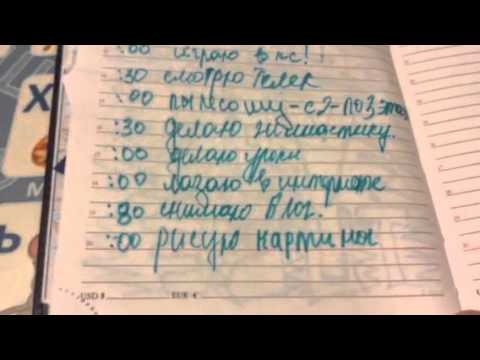 :00 играю в пс!
:30 смотрю телек
:00 пылесошу-с 2-по 3 этаж
:30 делаю гимнастику.
:00 делаю уроки
:00 лазаю в интернете
:30 снимаю влог.
:00 рисую картины
USD $
EUR €
Х
Ь